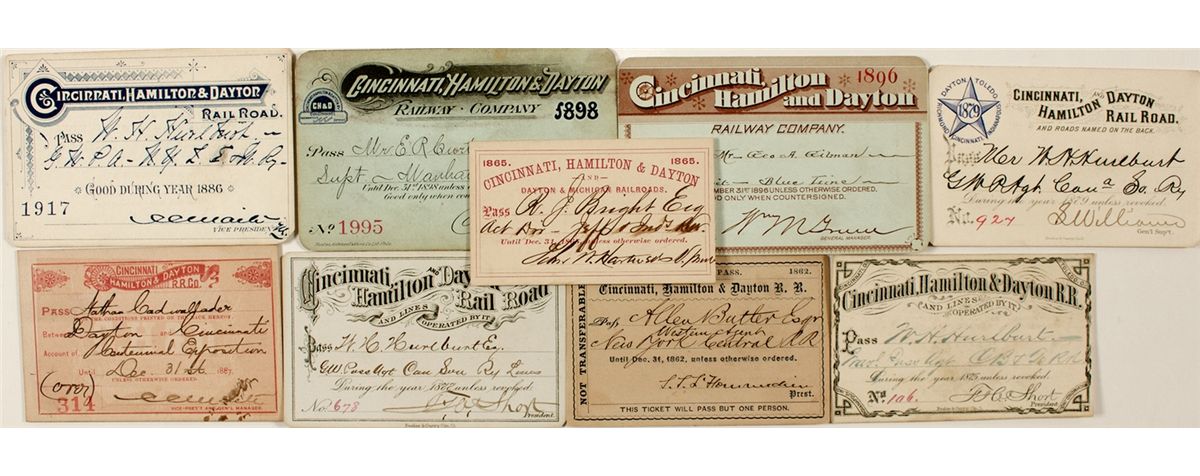 CINCINNATI, HAMILTON & DAYTON
RAIL ROAD.
Pass W. H. Hurlburt
GOOD DURING YEAR 1886
1917
VICE PRESIDENT
CINCINNATI, HAMILTON & DAYTON
RAILWAY COMPANY
CH&D
1898
Pass Mr E R
Supt
Until Dec. 31st 1898 unless
Good only when
No 1995
Cincinnati,
Hamilton
and Dayton
1896
RAILWAY COMPANY.
Mr Geo A. Gilman
Blue Line
EMBER 31ST 1896 UNLESS OTHERWISE ORDERED,
OD ONLY WHEN COUNTERSIGNED.
Wm M Greene
GENERAL MANAGER.
DAYTON TOLEDO
RICHMOND INDIANAPOLIS
1879
CINCINNATI,
HAMILTON AND DAYTON
RAIL ROAD,
AND ROADS NAMED ON THE BACK.
Pass Mr W H Hurlburt
During the year 1879 unless revoked.
No. 927
Williams
Gen'l Sup't.
1865. 1865.
CINCINNATI, HAMILTON & DAYTON
AND
DAYTON & MICHIGAN RAILROADS.
Pass R. J. Bright Esq
Until Dec. 31, unless otherwise ordered.
CINCINNATI
HAMILTON & DAYTON
R.R. CO.
PASS Nathan Cadwallader
THE CONDITIONS PRINTED ON THE BACK HEREOF
Between Dayton and Cincinnati
Account of Centennial Exposition
Until Dec. 31st 188
UNLESS OTHERWISE ORDERED.
(over)
314
VICE-PRES'T AND GEN'L MANAGER.
Cincinnati,
Hamilton AND Day
Rail Road
AND LINES OPERATED BY IT.
Pass W. H. Hurlburt Esq.
GW Pass Agt Can Sou Ry Lines
During the year 1877 unless revoked
No. 678
Short
President.
PASS. 1862.
Cincinnati, Hamilton & Dayton R. R.
NOT TRANSFERABLE.
Pass Allen Butler Esqr
Western Agent
New York Central RR
Until Dec. 31, 1862, unless otherwise ordered.
Prest.
THIS TICKET WILL PASS BUT ONE PERSON.
Cincinnati, Hamilton & Dayton R.R.
AND LINES OPERATED BY IT.
Pass W. H. Hurlburt
During the year 1875 unless revoked.
No. 106.
Short
President